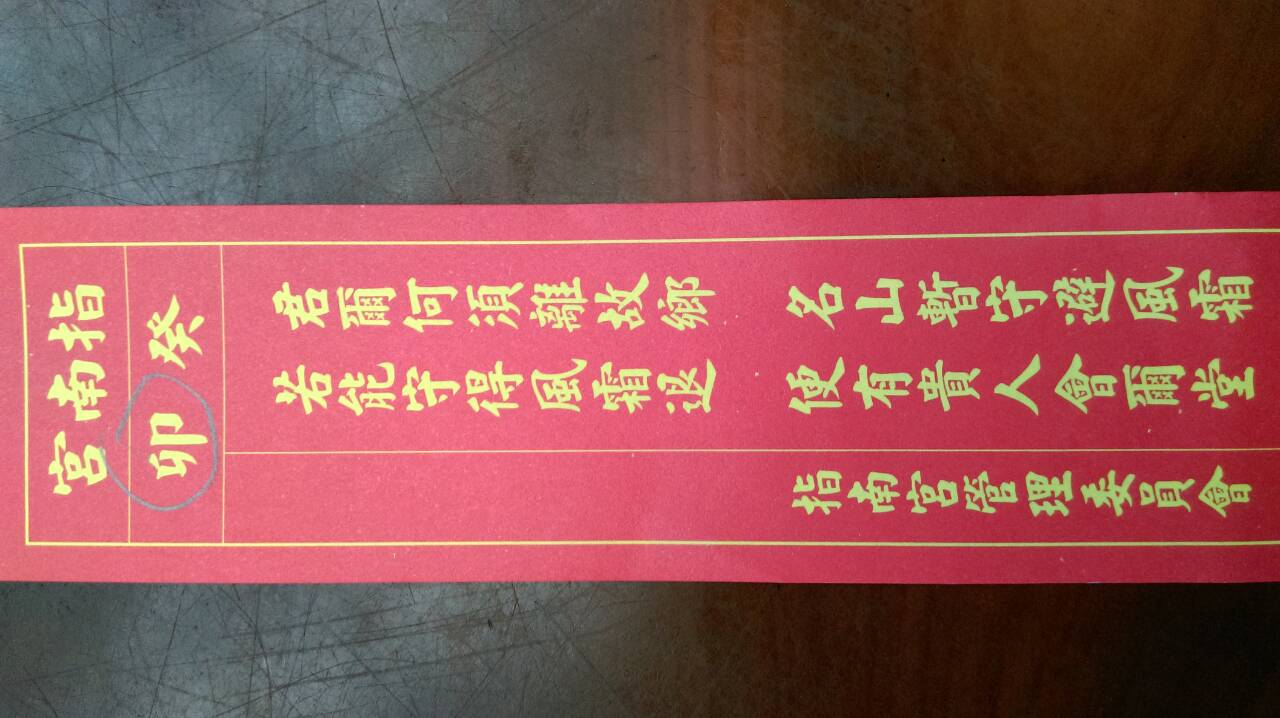 指南宮
癸卯
君爾何須離故鄉 名山暫守避風霜
若能守得風霜退 便有貴人會爾堂
指南宮管理委員會